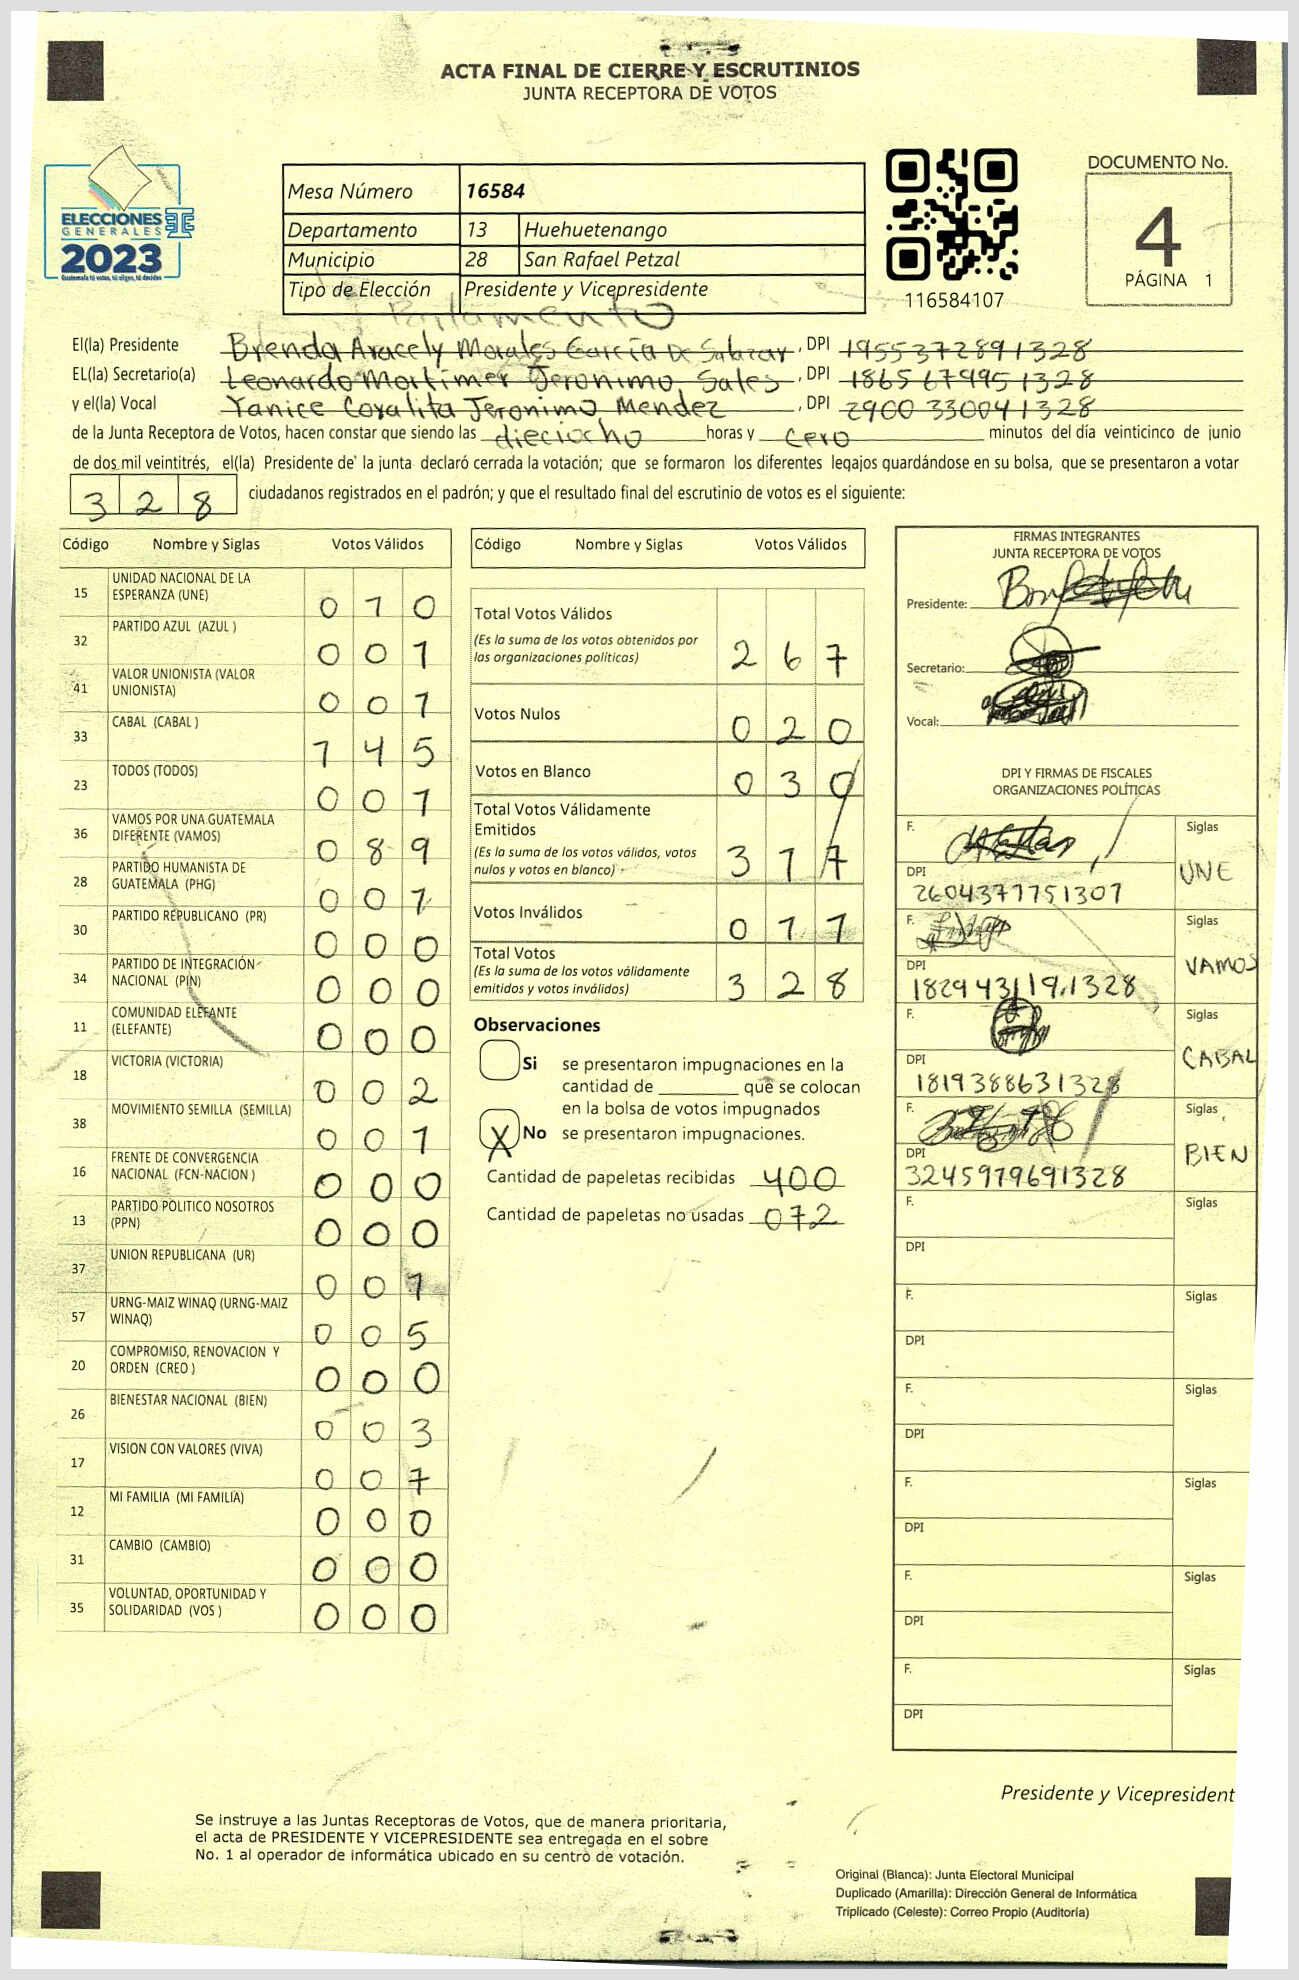 ACTA FINAL DE CIERRE Y ESCRUTINIOS
JUNTA RECEPTORA DE VOTOS
ELECCIONES
GENERALES
2023
Guatemala tú votas, tú eliges, tú decides
Mesa Número 16584
Departamento 13 Huehuetenango
Municipio 28 San Rafael Petzal
Tipo de Elección Presidente y Vicepresidente
116584107
DOCUMENTO No.
4
PÁGINA 1
El(la) Presidente Brenda Aracely Morales García De Salazar, DPI 1955372891328
EL(la) Secretario(a) Leonardo Mortimer Jeronimo Sales, DPI 1865679951328
y el(la) Vocal Yanice Coralita Jeronimo Mendez, DPI 2900 330041328
de la Junta Receptora de Votos, hacen constar que siendo las dieciocho horas y cero minutos del día veinticinco de junio
de dos mil veintitrés, el(la) Presidente de la junta declaró cerrada la votación; que se formaron los diferentes legajos guardándose en su bolsa, que se presentaron a votar
328 ciudadanos registrados en el padrón; y que el resultado final del escrutinio de votos es el siguiente:
Código Nombre y Siglas Votos Válidos
15 UNIDAD NACIONAL DE LA ESPERANZA (UNE) 010
32 PARTIDO AZUL (AZUL ) 001
41 VALOR UNIONISTA (VALOR UNIONISTA) 001
33 CABAL (CABAL ) 145
23 TODOS (TODOS) 001
36 VAMOS POR UNA GUATEMALA DIFERENTE (VAMOS) 089
28 PARTIDO HUMANISTA DE GUATEMALA (PHG) 001
30 PARTIDO REPUBLICANO (PR) 000
34 PARTIDO DE INTEGRACIÓN NACIONAL (PIN) 000
11 COMUNIDAD ELEFANTE (ELEFANTE) 000
18 VICTORIA (VICTORIA) 002
38 MOVIMIENTO SEMILLA (SEMILLA) 001
16 FRENTE DE CONVERGENCIA NACIONAL (FCN-NACION ) 000
13 PARTIDO POLITICO NOSOTROS (PPN) 000
37 UNION REPUBLICANA (UR) 001
57 URNG-MAIZ WINAQ (URNG-MAIZ WINAQ) 005
20 COMPROMISO, RENOVACION Y ORDEN (CREO ) 000
26 BIENESTAR NACIONAL (BIEN) 003
17 VISION CON VALORES (VIVA) 007
12 MI FAMILIA (MI FAMILIA) 000
31 CAMBIO (CAMBIO) 000
35 VOLUNTAD, OPORTUNIDAD Y SOLIDARIDAD (VOS ) 000
Código Nombre y Siglas Votos Válidos
Total Votos Válidos
(Es la suma de los votos obtenidos por
las organizaciones políticas) 267
Votos Nulos 020
Votos en Blanco 030
Total Votos Válidamente
Emitidos
(Es la suma de los votos válidos, votos
nulos y votos en blanco) 317
Votos Inválidos 011
Total Votos
(Es la suma de los votos válidamente
emitidos y votos inválidos) 328
Observaciones
Si se presentaron impugnaciones en la
cantidad de ________ que se colocan
en la bolsa de votos impugnados
X No se presentaron impugnaciones.
Cantidad de papeletas recibidas 400
Cantidad de papeletas no usadas 072
FIRMAS INTEGRANTES
JUNTA RECEPTORA DE VOTOS
Presidente:
Secretario:
Vocal:
DPI Y FIRMAS DE FISCALES
ORGANIZACIONES POLÍTICAS
F. Siglas
DPI UNE
2604377751307
F. Siglas
DPI VAMOS
1829431191328
F. Siglas
DPI CABAL
1819388631328
F. Siglas
DPI BIEN
3245979691328
F. Siglas
DPI
F. Siglas
DPI
F. Siglas
DPI
F. Siglas
DPI
F. Siglas
DPI
F. Siglas
DPI
Presidente y Vicepresident
Se instruye a las Juntas Receptoras de Votos, que de manera prioritaria,
el acta de PRESIDENTE Y VICEPRESIDENTE sea entregada en el sobre
No. 1 al operador de informática ubicado en su centro de votación.
Original (Blanca): Junta Electoral Municipal
Duplicado (Amarilla): Dirección General de Informática
Triplicado (Celeste): Correo Propio (Auditoría)